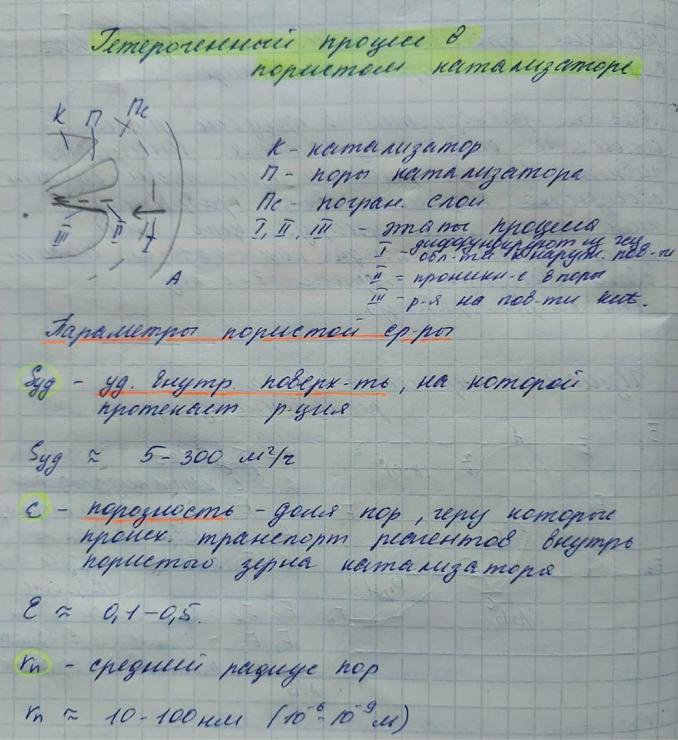 Гетерогенный процесс в
пористом катализаторе
К П Пс
К - катализатор
П - поры катализатора
Пс - погран. слой
I, II, III - этапы процесса
I - диффундируют из газ
обл-ти к наруж. пов-ти
II - проникн-е в поры
III - р-я на пов-ти кат.
III II I
А
Параметры пористой ср-ры
Sуд - уд. внутр. поверх-ть, на которой
протекает р-ция
Sуд ≈ 5-300 м²/г
ε - порозность - доля пор, через которые
происх. транспорт реагентов внутрь
пористого зерна катализатора
ε ≈ 0,1-0,5.
rп - средний радиус пор
rп ≈ 10-100 нм (10⁻⁶-10⁻⁹ м)